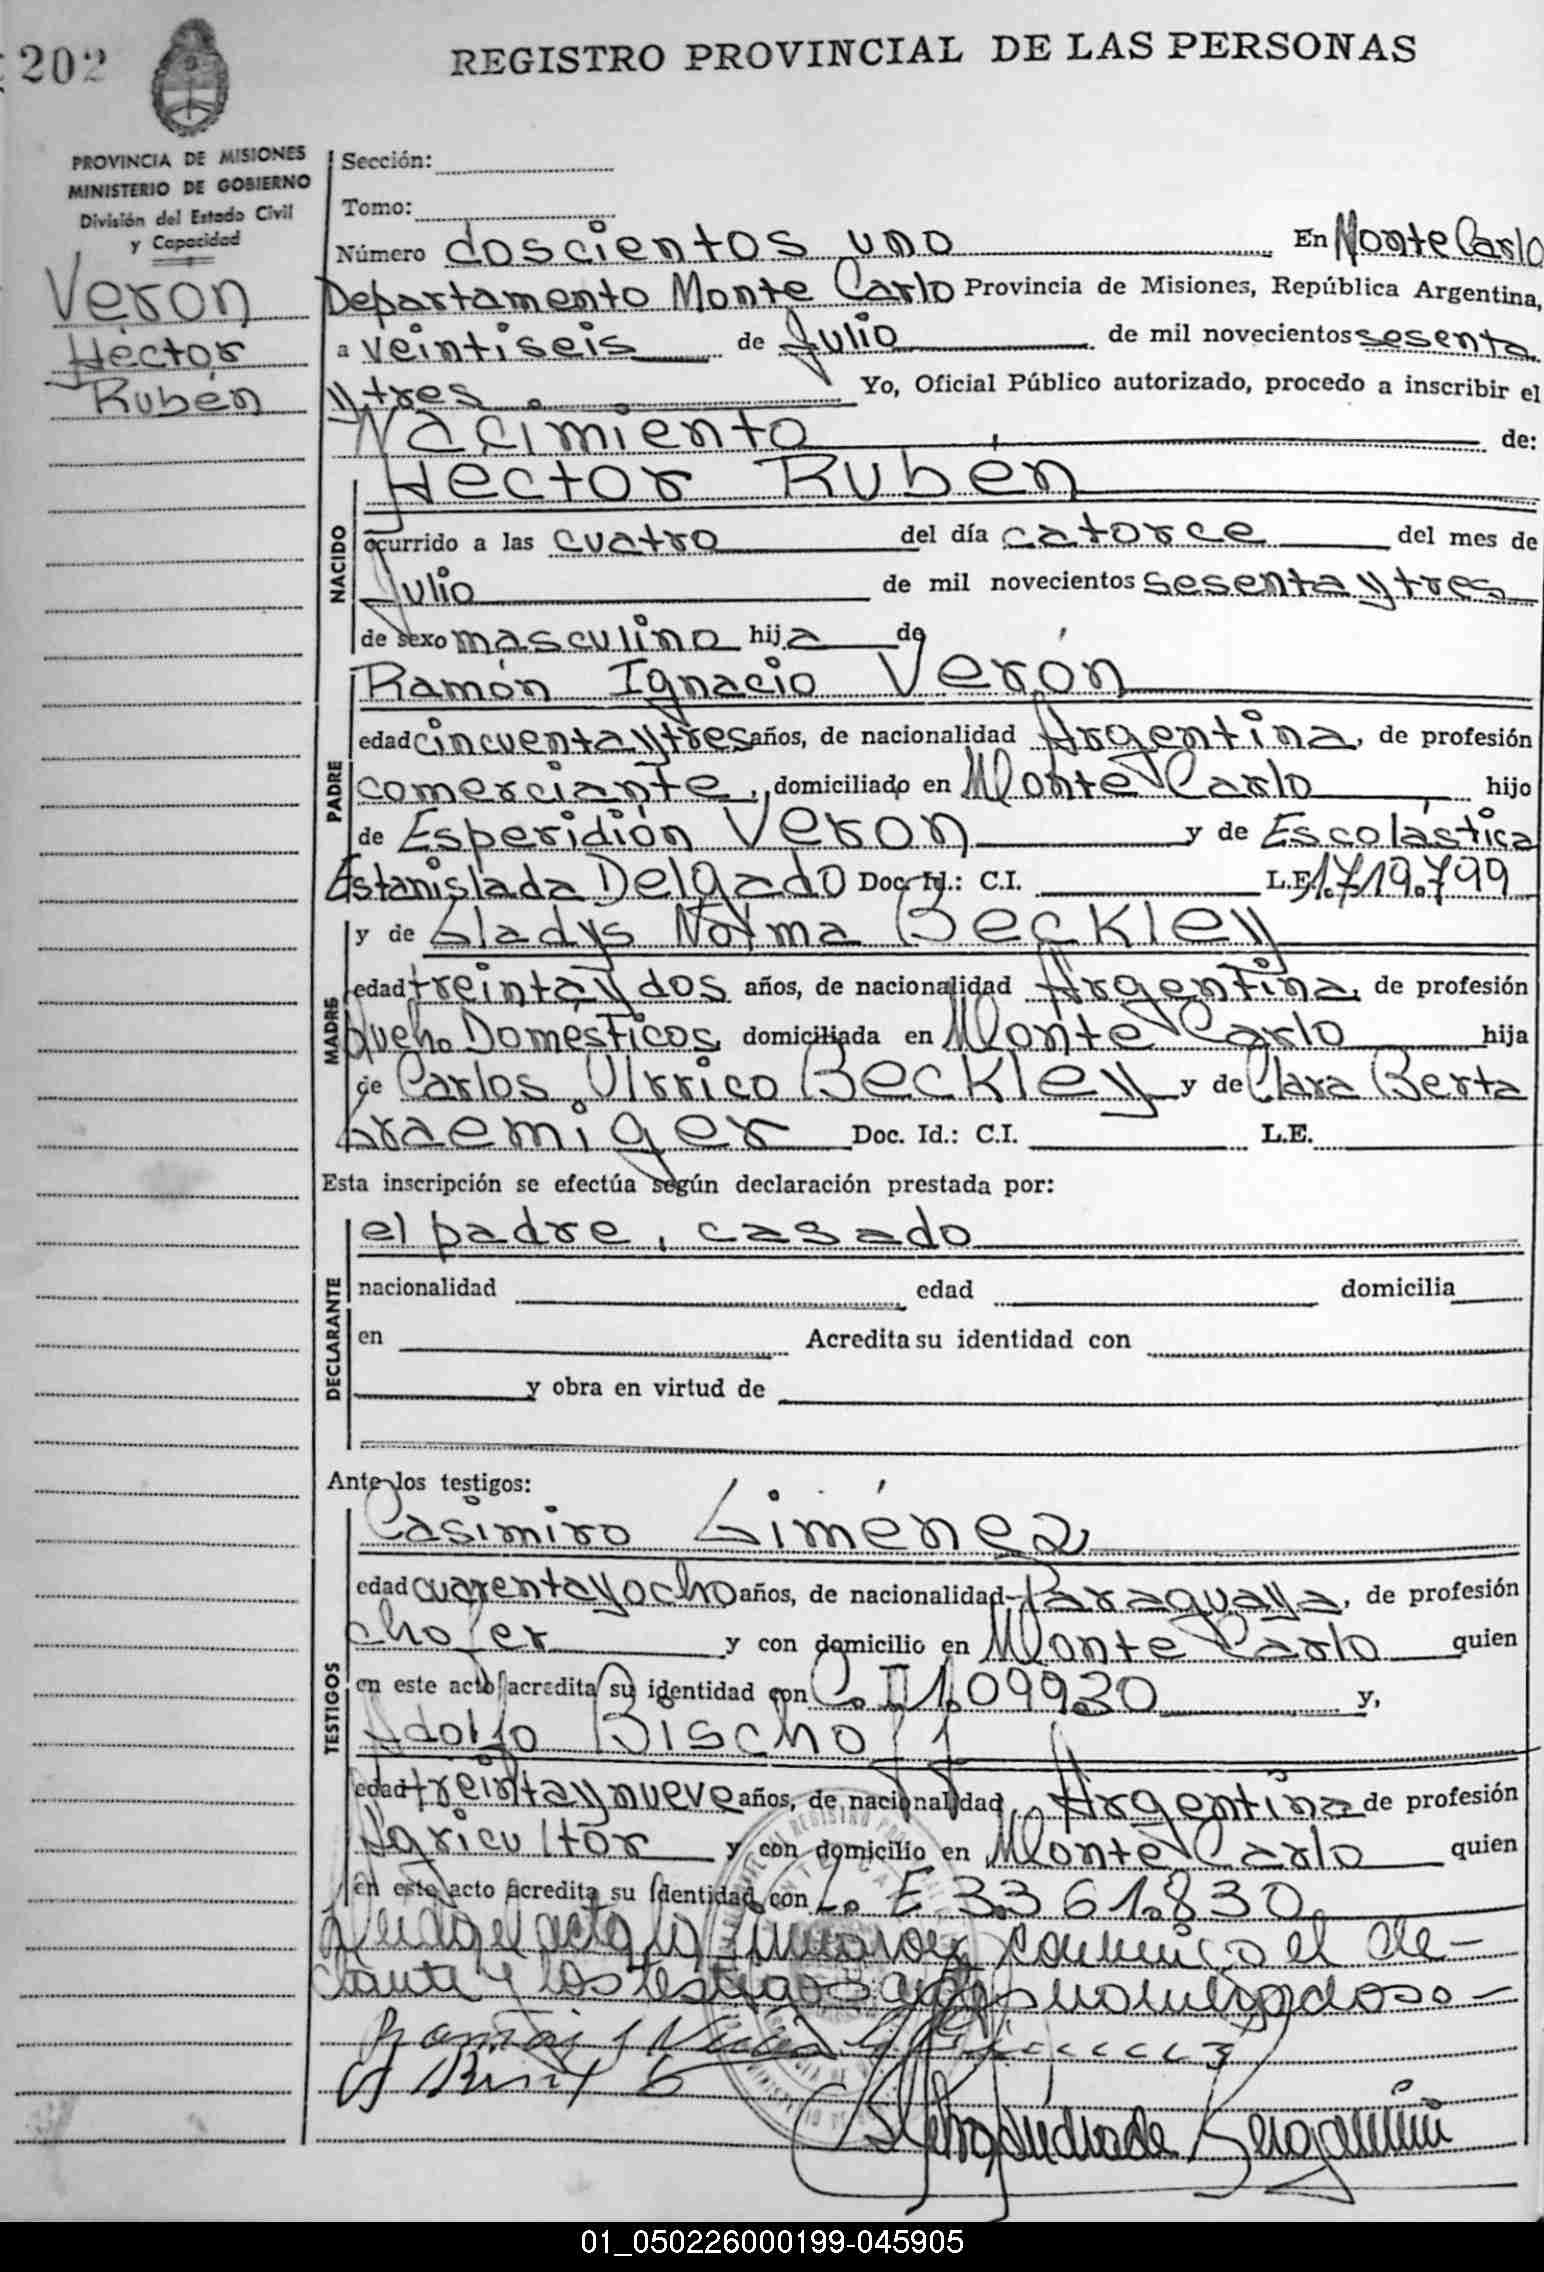 202
REGISTRO PROVINCIAL DE LAS PERSONAS
PROVINCIA DE MISIONES
MINISTERIO DE GOBIERNO
División del Estado Civil
y Capacidad
Veron
Héctor
Rubén
Sección:
Tomo:
Número doscientos uno En Monte Carlo
Departamento Monte Carlo Provincia de Misiones, República Argentina,
a veintiseis de Julio de mil novecientos sesenta
y tres Yo, Oficial Público autorizado, procedo a inscribir el
Nacimiento de:
Héctor Rubén
NACIDO
ocurrido a las cuatro del día catorce del mes de
Julio de mil novecientos sesenta y tres
de sexo masculino hija de
Ramón Ignacio Verón
PADRE
edad cincuenta y tres años, de nacionalidad Argentina, de profesión
comerciante, domiciliado en Monte Carlo hijo
de Esperidión Veron y de Escolástica
Estanislada Delgado Doc. Id.: C.I. L.E. 1.719.799
y de Gladys Norma Beckley
MADRE
edad treinta y dos años, de nacionalidad Argentina, de profesión
Queh. Domésticos, domiciliada en Monte Carlo hija
de Carlos Ulrrico Beckley y de Clara Berta
Graemiger Doc. Id.: C.I. L.E.
Esta inscripción se efectúa según declaración prestada por:
el padre, casado
DECLARANTE
nacionalidad edad domicilia
en Acredita su identidad con
y obra en virtud de
Ante los testigos:
Casimiro Giménez
TESTIGOS
edad cuarenta y ocho años, de nacionalidad Paraguaya, de profesión
chofer y con domicilio en Monte Carlo quien
en este acto acredita su identidad con C. I 1.099.30 y,
Adolfo Bischoff
edad treinta y nueve años, de nacionalidad Argentina de profesión
Agricultor y con domicilio en Monte Carlo quien
en este acto acredita su identidad con L. E 3.361.830
Leida el acta la firmaron conmigo el de-
clarante y los testigos antes nombrados
01_050226000199-045905